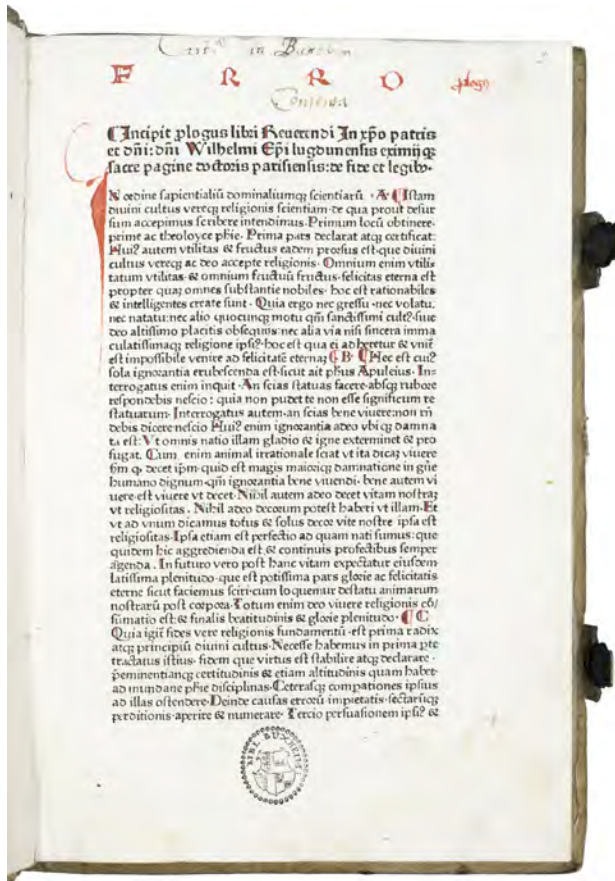 in Buxheim
F R R O plogus
¶Incipit ꝓlogus libri Reuerendi In xp̄o patris
et dñi: dñi Wilhelmi Ep̄i lugdunensis eximijqꝫ
sacre pagine doctoris parisiensis: de fide et legibꝰ.
IN ordine sapientialiū dominaliumqꝫ scientiarū · A · ¶Istam
diuini cultus vereqꝫ religionis scientiam· de qua prout desur
sum accepimus scribere intendimus. Primum locū obtinere·
prime ac theoloyce ph̄ie· Prima pars declarat atqꝫ certificat·
Huiꝰ autem vtilitas & fructus eadem prorsus est· que diuini
cultus vereqꝫ ac deo accepte religionis· Omnium enim vtili
tatum vtilitas· & omnium fructuū fructus· felicitas eterna est
propter quaꝫ omnes substantie nobiles· hoc est rationabiles
& intelligentes create sunt· Quia ergo nec gressu· nec volatu·
nec natatu: nec alio quocunqꝫ motu qm̄ sanctissimi cultꝰ· siue
deo altissimo placitis obsequijs: nec alia via nisi sincera imma
culatissimaqꝫ religione ipsiꝰ· hoc est qua ei adheretur & vnit̄
est impossibile venire ad felicitatē eternaꝫ ¶ B · ¶Hec est cuiꝰ
sola ignorantia erubescenda est· sicut ait ph̄us Apuleius· In⸗
terrogatus enim inquit· An scias statuas facere· absqꝫ rubore
respondebis nescio: quia non pudet te non esse significum re
statuarum· Interrogatus autem· an scias bene viuere: non rn̄
debis dicere nescio Huiꝰ enim ignorantia adeo vbiqꝫ damna
ta est: Vt omnis natio illam gladio & igne exterminet & pro
fugat· Cum enim animal irrationale sciat vt ita dicaꝫ viuere
ẜm ꝙ decet ip̄m· quid est magis maioriqꝫ damnatione in gn̄e
humano dignum· qm̄ ignorantia bene viuendi· bene autem vi
uere· est viuere vt decet· Nihil autem adeo decet vitam nostraꝫ
vt religiositas· Nihil adeo decorum potest haberi vt illam· Et
vt ad vnum dicamus totus & solus decor vite nostre ipsa est
religiositas· Ipsa etiam est perfectio ad quam nati sumus: que
quidem hic aggredienda est & continuis profectibus semper
agenda· In futuro vero post hanc vitam expectatur eiusdem
latissima plenitudo· que est potissima pars glorie ac felicitatis
eterne sicut faciemus sciri· cum loquemur de statu animarum
nostrarū post corpora· Totum enim deo viuere religionis cō/
sumatio est & finalis beatitudinis & glorie plenitudo· ¶ C
Quia igit̄ fides vere religionis fundamentū· est prima radix
atqꝫ principiū diuini cultus· Necesse habemus in prima pte
tractatus istius· fidem que virtus est stabilire atqꝫ declarare·
p̄eminentiamqꝫ certitudinis & etiam altitudinis quam habet·
ad mundane ph̄ie disciplinas· Ceterasqꝫ compationes ipsius
ad illas ostendere· Deinde causas errorū impietatis· sectarūqꝫ
perditionis· aperire & numerare· Tercio persuasionem ipsiꝰ &
BIBL. BUXHEIM